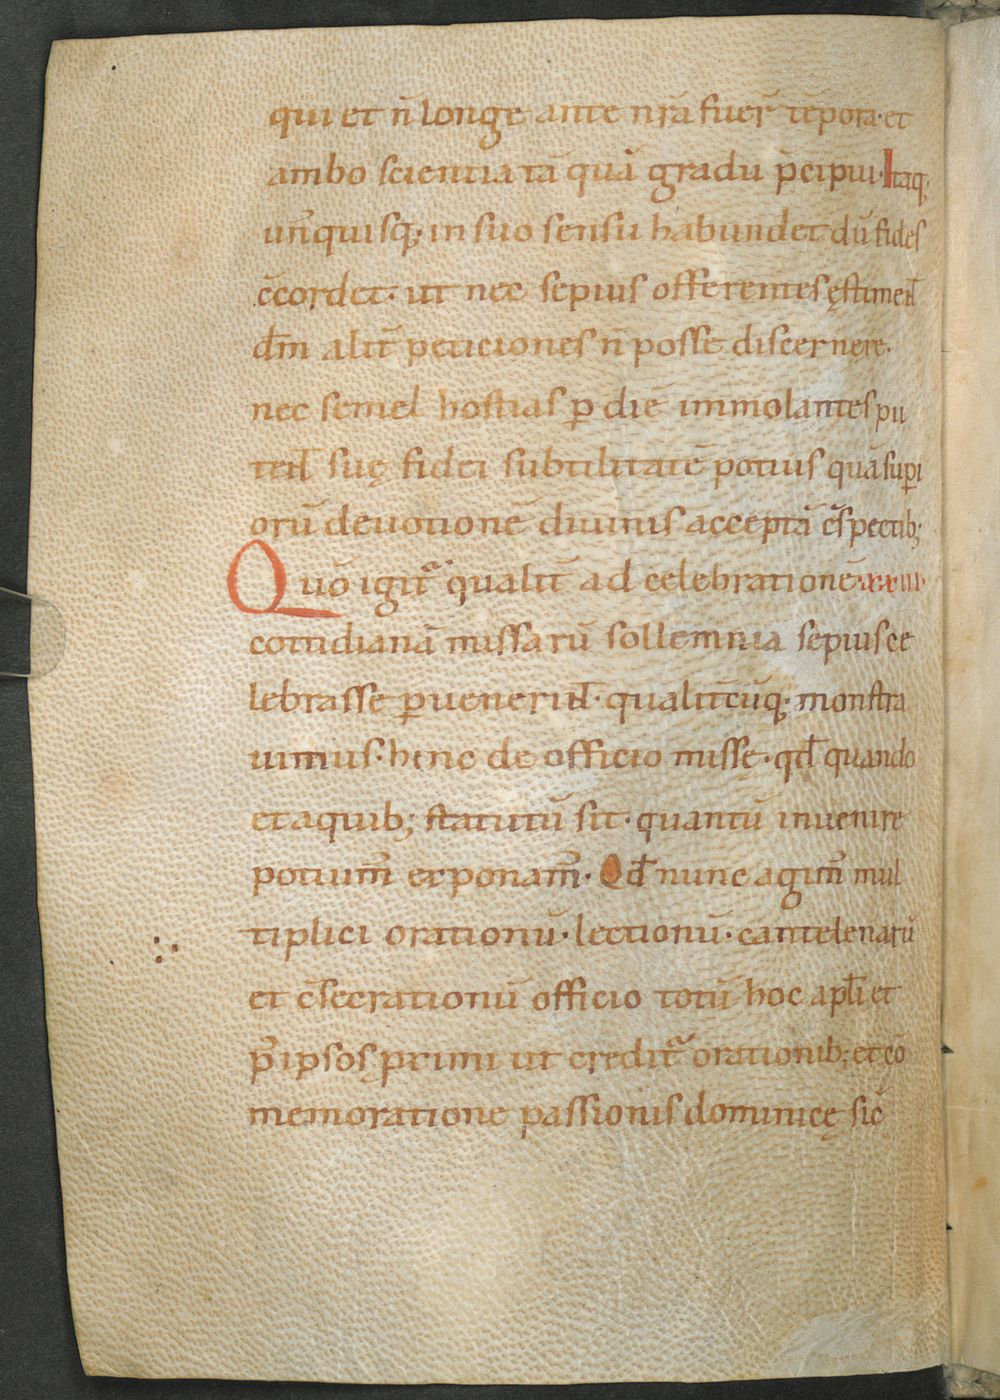 qui et n̄ longe ante nr̄a fuer̄ tēpora· et
ambo scientia tā quā gradu p̄cipui· Itaq;
un̄quisq; in suo sensu habundet dū fides
c̄cordet· ut nec sepius offerentes ęstiment
dm̄ alit̄ peticiones n̄ posse discernere·
nec semel hostias ꝑ diē immolantes pu
tent suę fidei subtilitatē potius quā suꝑi
orū deuotionē diuinis acceptā c̄spectib;
Quō igit̄ qualit̄ ad celebrationē xxiii·
cotidianā missarū sollemnia sepius ce
lebrasse ꝑuenerint· qualit̄cūq; monstra
uimus· hinc de officio missę· qd̄ quando
et a quib; statutū sit· quantū inuenire
potuim̄ exponam̄· Qd̄ nunc agim̄ mul
tiplici orationū· lectionū· cantelenarū
et c̄secrationū officio totū hoc apl̄i et
p̄ ipsos primi ut credit̄ orationib; et cō
memoratione passionis dominicę sic̄